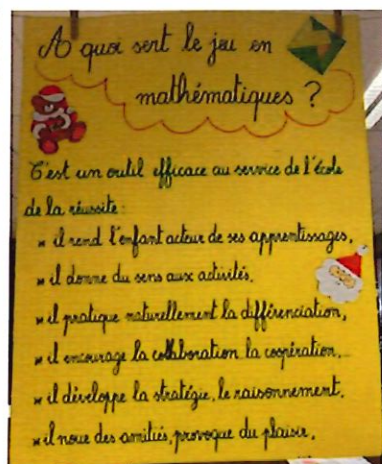 A quoi sert le jeu en
mathématiques ?
C'est un outil efficace au service de l'école
de la réussite :
* il rend l'enfant acteur de ses apprentissages,
* il donne du sens aux activités,
* il pratique naturellement la différenciation,
* il encourage la collaboration, la coopération,...
* il développe la stratégie, le raisonnement,
* il noue des amitiés, provoque du plaisir,